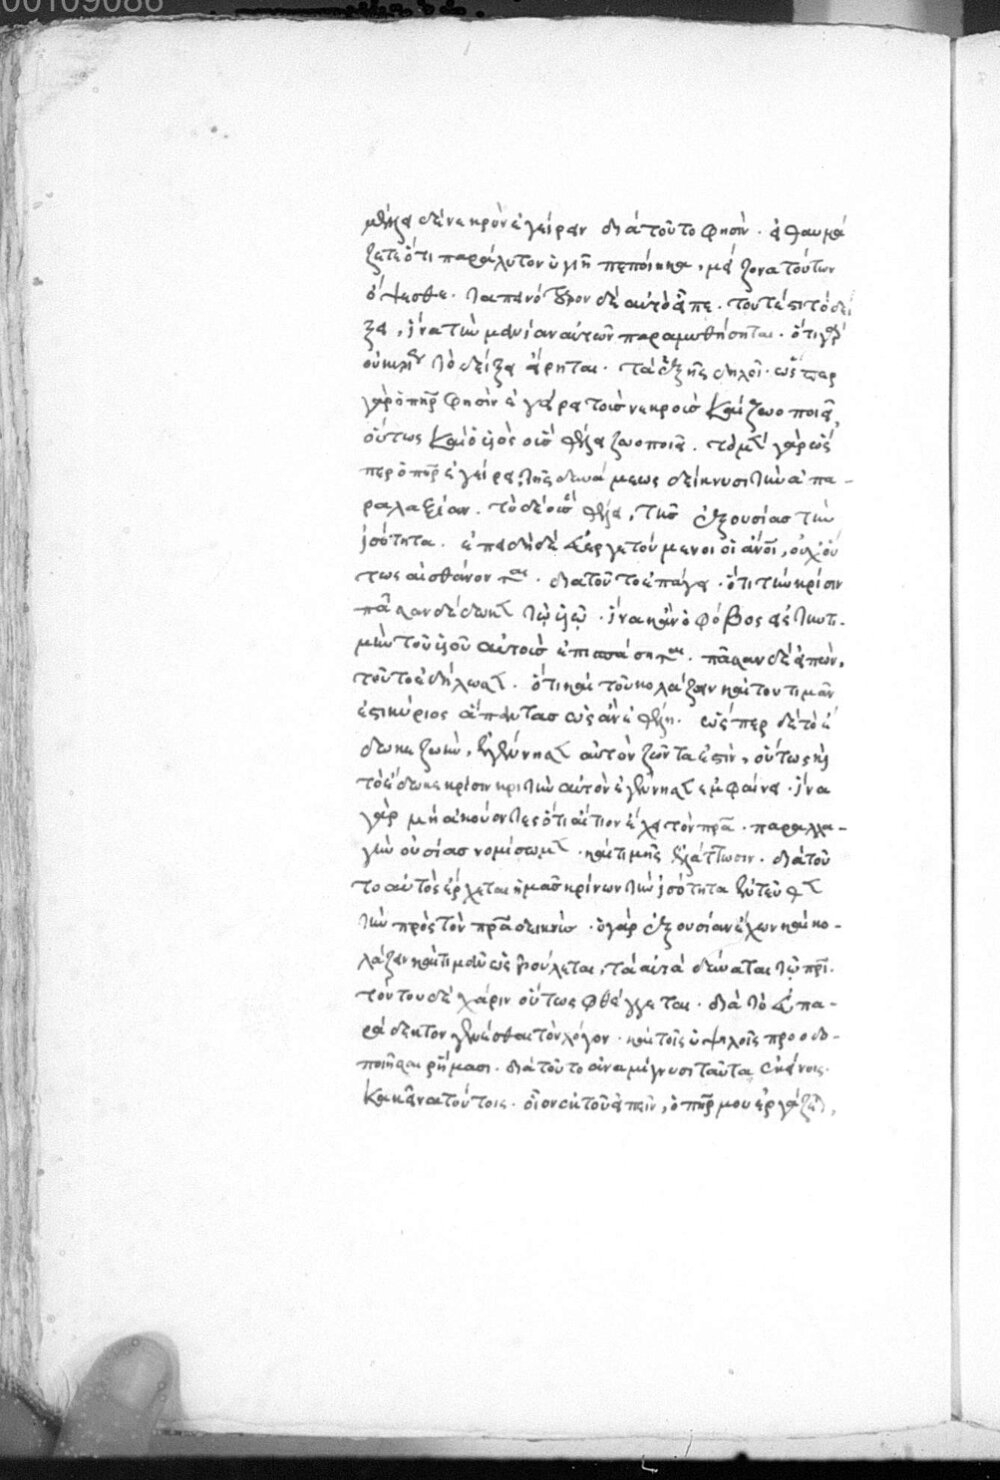 00109088
μεῖζον δὲ νεκρὸν ἐγείραι διὰ τοῦτο φησὶν · θαυμά
ζετε ὅτι παράλυτον ὑγιῆ πεποίηκα, μείζονα τούτων
ὄψεσθε · ταπεινότερον δὲ αὐτὸ εἶπε · τουτέστι τὸ δεί
ξει, ἵνα τὴν μανίαν αὐτῶν παραμυθήσηται · ὅτι γὰρ
τὸ δείξει εἴρηται · τὰ ἑξῆς δηλοῖ · ὥσπερ
γὰρ ὁ πηρ φησὶν ἐγείρει τοὺσ νεκροὺσ καὶ ζωοποιεῖ,
οὕτως καὶ ὁ υἱὸς οὓσ θέλει ζωοποιεῖ · τὸ μὲν γὰρ ὥσ
περ ὁ πηρ ἐγείρει, τῆς δυνάμεως δείκνυσι τὴν ἀπα-
ραλαξίαν · τὸ δὲ οὓσ θέλει, τῆσ ἐξουσίασ τὴν
ἰσότητα · ἐπειδὴ δὲ εὐεργετούμενοι οἱ ἄνοι, οὐχ οὕ
τως αἰσθάνονται · διὰ τοῦτο ἐπάγει · ὅτι τὴν κρίσιν
πᾶσαν δέδωκεν τῷ υἱῷ · ἵνα κἂν ὁ φόβος εἰς τὴν τι-
μὴν τοῦ υἱοῦ αὐτοὺσ ἐπισπάσηται · πᾶσαν δὲ εἰπὼν,
τοῦτο ἐδήλωσεν · ὅτι καὶ τοῦ κολάζειν καὶ του τιμᾶν
ἐστι κύριος ἅπαντασ ὡς ἂν ἐθέλῃ · ὥσπερ δὲ τὸ ἔ
δωκε ζωὴν, ἐγέννησεν αὐτὸν ζῶντα ἐστὶν, οὕτως καὶ
τὸ ἔδωκε κρίσιν κριτὴν αὐτὸν ἐγέννησεν ἐμφαίνει · ἵνα
γὰρ μὴ ἀκούοντες ὅτι αἴτιον ἔχει τὸν πρα · παραλλα-
γὴν οὐσίασ νομίσωμεν · καὶ τιμῆς ἐλάττωσιν · διὰ τοῦ
το αὐτὸς ἔρχεται ἡμᾶσ κρίνων τὴν ἰσότητα ἐντεῦθεν
τὴν πρὸς τὸν πρα δεικνὺσ · ὁ γὰρ ἐξουσίαν ἔχων καὶ κο-
λάζειν καὶ τιμᾶν ὡς βούλεται, τὰ αὐτὰ δύναται τῷ πρι ·
τούτου δὲ χάριν οὕτως φθέγγεται · διὰ τὸ εὐπα-
ράδεκτον γενέσθαι τὸν λόγον · καὶ τοῖς ὑψηλοῖς προοδο-
ποιῆσαι ῥήμασι · διὰ τοῦτο ἀναμίγνυσι ταῦτα ἐκείνοις
κἀκεῖνα τούτοις · οἷον ἐκ τοῦ εἰπεῖν, ὁ πηρ μου ἐργάζεται,